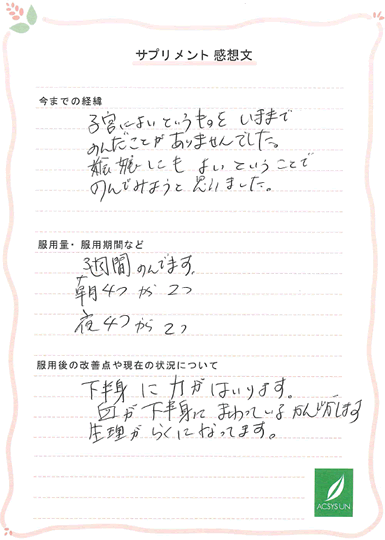 サプリメント 感想文
今までの経緯
子宮によいというものを いままで
のんだことがありませんでした。
妊娠しにも よいということで
のんでみようと思いました。
服用量・服用期間など
3週間 のんでます。
朝4つ か 2つ
夜4つ か 2つ
服用後の改善点や現在の状況について
下半身 に 力が はいります。
血が 下半身に まわっている かんじがします
生理が らくになってます。
ACSYSUN